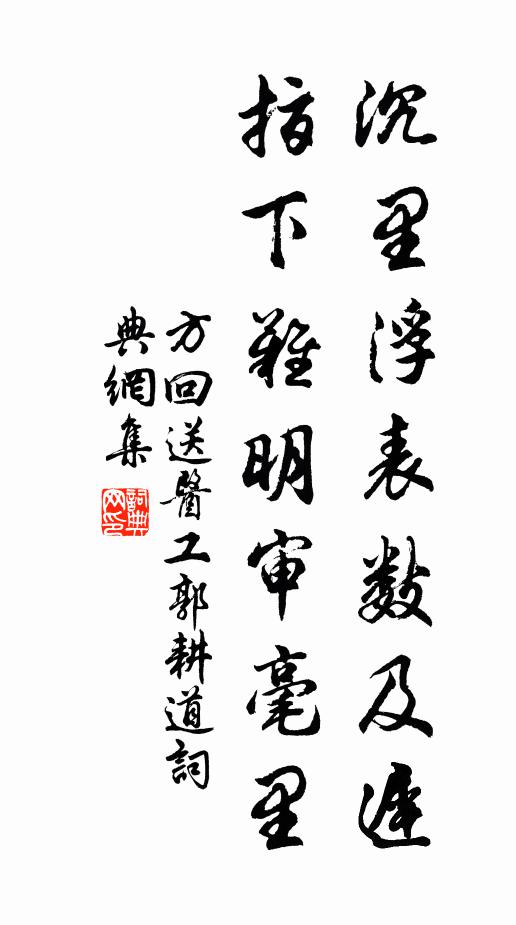 沉里浮表数及遲
指下難明审毫里
方回送醫工郭耕道詞
典網集
詞典網印